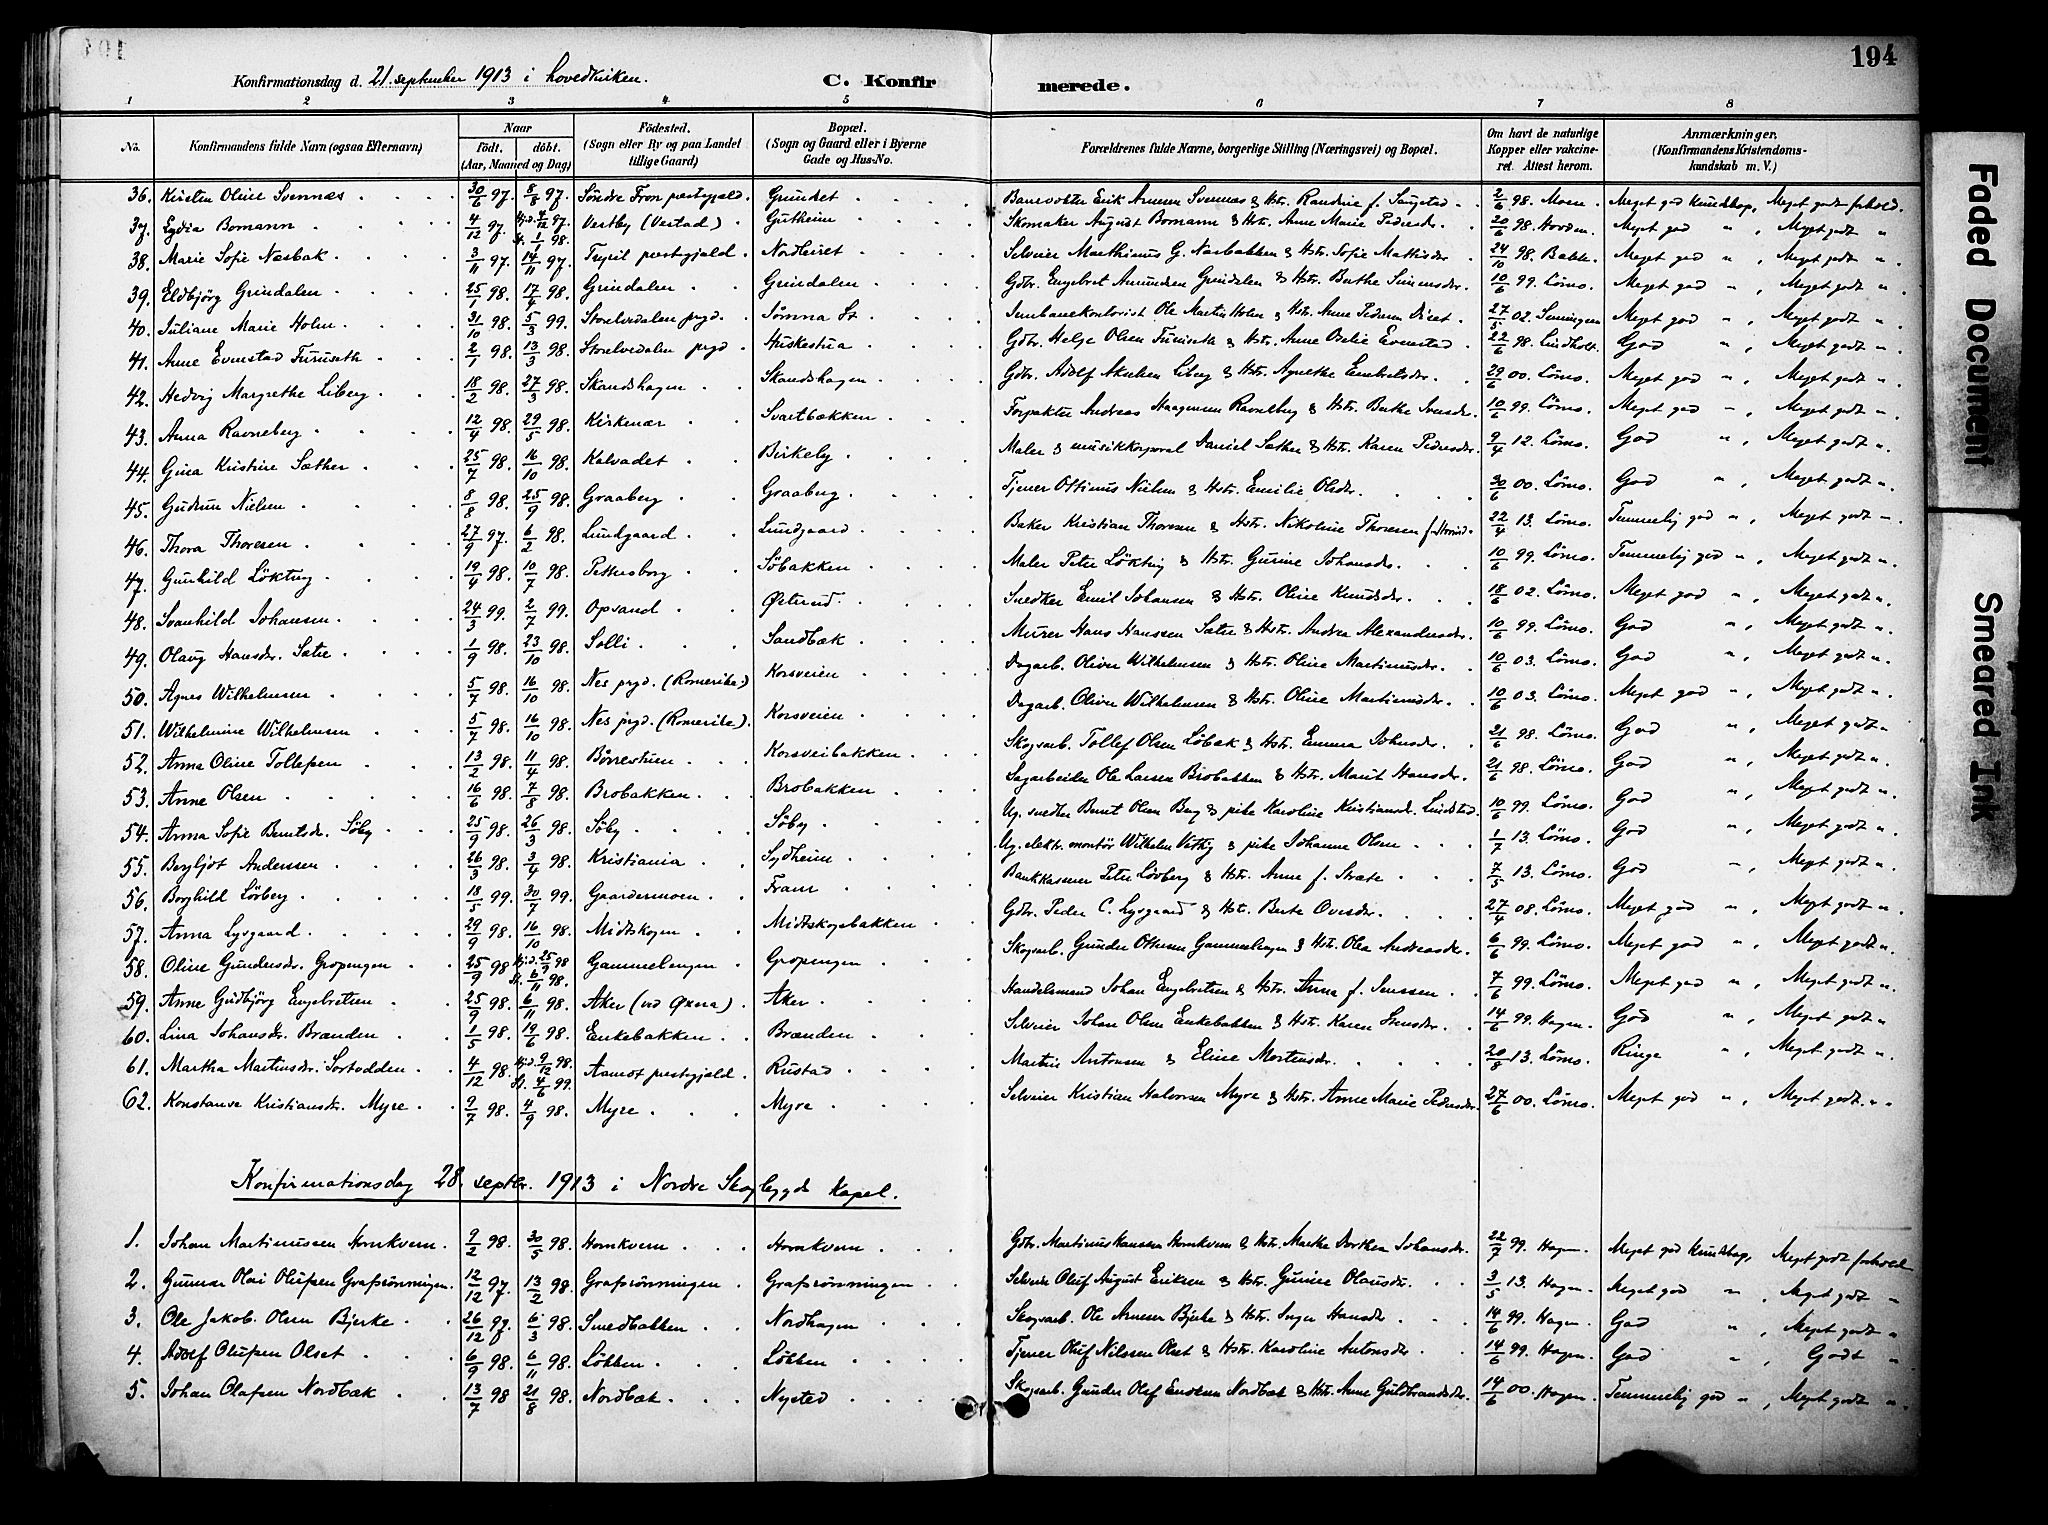 194
Konfirmationsdag d. 21. september 1913 i hovedkirken. C. Konfirmerede.
1 2 3 4 5 6 7 8
No. Konfirmandens fulde Navn (ogsaa Efternavn) Naar Födt. döbt. (Aar, Maaned og Dag) Födested. (Sogn eller By og paa Landet tillige Gaard) Bopæl. (Sogn og Gaard eller i Byerne Gade og Hus-No. Forældrenes fulde Navne, borgerlige Stilling (Næringsvei) og Bopæl. Om havt de naturlige Kopper eller vakcineret. Attest herom. Anmærkninger. (Konfirmandens Kristendomskundskab m. V.)
36. Kirsten Oline Svennæs 30/6 97. 8/8 97. Söndre Fron prestegjeld. Grundset Banevokter Erik Arnesen Svennes & Hstr. Randine f. 2/6 98. Moen. Meget god kundskap, Meget godt forhold.
37. Lydia Bomann 4/12 97. Hjd. 4/12 97. St. 1/1 98. Vestby (Vestad) Gutheim Skomaker August Bomann & Hstr. Anne Marie Pedersdr. 20/6 98. Hovden. Meget god " , Meget godt "
38. Marie Sofie Næsbak 3/11 97. 14/11 97. Trysil prestgjeld. Nordheiret Selveier Marthinus G. Næsbakken & Hstr. Sofie Mathisdr. 24/10 98. Bakke. Meget god " , Meget godt "
39. Eldbjörg Grindalen 25/1 98. 17/4 98. Grindalen Grindalen Gdbr. Engebret Amundsen Grindalen & Hstr. Berthe Simensdr. 10/6 99. Lömo. Meget god " , Meget godt "
40. Juliane Marie Holen 31/10 98. 5/3 99. Storelvedalen prgd. Sømna St. Jernbanekontorist Ole Martin Holen & Hstr. Anne Pedersen Diset. 27/5 02. Meget god " , Meget godt "
41. Anne Evenstad Furuseth 2/1 98. 13/3 98. Storelvedalen prgd. Huskestua Gdbr. Helge Olsen Furuseth & Hstr. Anne Oselie Evenstad 22/6 98. Lindholt. God " , Meget godt "
42. Hedvig Margrethe Liberg 18/2 98. 27/3 98. Skandshagen Skandshagen Gdbr. Adolf Liberg & Hstr. Agnethe Embretsdr. 29/6 00. Lömo. Meget god " , Meget godt "
43. Anna Ravneberg 12/4 98. 29/5 98. Kirkenær Svartbækken Forpakter Andreas Haagensen Ravneberg & Hstr. Berthe Ivarsdr. 10/6 99. Lömo. Meget god " , Meget godt "
44. Gina Kristine Sæther 25/7 98. 16/10 98. Kalvadet Birkely Maler & musikkorporal Daniel Sæther & Hstr. Karen Pedersdr. 9/4 12. Lömo. God " , Meget godt "
45. Gudrun Nielsen 8/8 98. 25/9 98. Graaberg Graaberg Tjener Ottinus Nielsen & Hstr. Emilie Olsdr. 30/6 00. Lömo. God " , Meget godt "
46. Thora Thoresen 27/9 97. 6/2 98. Lundgaard Lundgaard Baker Kristian Thoresen & Hstr. Nikoline Thoresen f. 22/4 13. Lömo. Temmelig god " , Meget godt "
47. Gunhild Löktug 19/4 98. 10/7 98. Pettersborg Söbakken Maler Peter Löktug & Hstr. Gurine Johansdr. 10/6 99. Lömo. Temmelig god " , Meget godt "
48. Svanhild Johansen 24/3 99. 2/7 99. Opsand Østerud Snedker Emil Johansen & Hstr. Oline Knudsdr. 18/6 02. Lömo. Meget god " , Meget godt "
49. Olaug Hansdr. Sætre 1/9 98. 23/10 98. Solli Sandbæk Murer Hans Hansen Sætre & Hstr. Andrea Alexandersdr. 10/6 99. Lömo. God " , Meget godt "
50. Agnes Wilhelmsen 5/7 98. 16/10 98. Nes prgd. (Romerike.) Korsveien Dagarb. Oliver Wilhelmsen & Hstr. Oline Martinusdr. 10/6 03. Lömo. God " , Meget godt "
51. Wilhelmine Wilhelmsen 5/7 98. 16/10 98. Nes prgd. (Romerike). Korsveien Dagarb. Oliver Wilhelmsen & Hstr. Oline Martinusdr. 10/6 03. Lömo. Meget god " , Meget godt "
52. Anna Oline Tollefsen 13/2 98. 11/4 98. Børrestuen Korsveibakken Skogsarb. Tollef Olsen Løbak & Hstr. Emma Johansdr. 21/6 98. Lömo. God " , Meget godt "
53. Anne Olsen 16/6 98. 7/8 98. Brobakken Brobakken Sagarbeider Ole Larsen Brobakken & Hstr. Marit Hansdr. 21/6 98. Lömo. God " , Meget godt "
54. Anna Sofie Berntsdr. Söby 25/9 98. 26/3 98. Söby Söby Ug. snedker Bernt Olsen Berg & pike Karoline Kristiansdr. Lindstad 10/6 99. Lömo. God " , Meget godt "
55. Bergljot Anderssen 26/3 98. 3/4 98. Kristiania Sydheim Ug. elektr. montör Wilhelm Vethig & pike Johanne Olsen 1/7 13. Lömo. God " , Meget godt "
56. Borghild Lövberg 18/5 99. 30/7 99. Gaardermoen Fram Bankkasserer Peter Lövberg & Hstr. Anne f. Stræte 7/5 13. Lömo. God " , Meget godt "
57. Anna Lysgaard 29/9 98. 16/10 98. Midtskogen Midtskogbakken Gdbr. Peder C. Lysgaard & Hstr. Berte Ovesdr. 27/4 08. Lömo. Meget god " , Meget godt "
58. Oline Gundersdr. Gropengen 25/9 98 Hjd. 25/9 98 St. 6/11 98. Gammelengen Gropengen Skogsarb. Gunder Ottersen Gammelengen & Hstr. Olea Andreasdr. 6/6 99. Lömo. Meget god " , Meget godt "
59. Anne Gudbjörg Engebretsen 25/9 98. 6/11 98. Aker (ved Øxna) Aker Handelsmand Johan Engebretsen & Hstr. Anna f. Jenssen 7/6 99. Lömo. Meget god " , Meget godt "
60. Lina Johansdr. Brænden 1/5 98. 19/6 98. Enkebakken Brænden Selveier Johan Olsen Enkebakken & Hstr. Karen Jensdr. 14/6 99. Hagen. God " , Meget godt "
61. Martha Martinsdr. Sortodden 4/12 98. Hjd. 9/12 98. St. 4/6 99. Aamot prestgjeld. Rustad Martin Antonsen & Eline Mortensdr. 20/8 13. Lömo. Ringe " , Meget godt "
62. Konstanse Kristiansdr. Myre 9/7 98. 4/9 98. Myre Myre Selveier Kristian Halvorsen Myre & Hstr. Anne Marie Pedersdr. 27/6 00. Lömo. Meget god " , Meget godt. "
Konfirmationsdag 28. septbr. 1913 i Nordre Skogbygds Kapel.
1. Johan Martinussen Hornkvern 9/2 98. 30/5 98. Hornkvern Hornkvern Gdbr. Martinus Hansen Hornkvern & Hstr. Marthe Dorthea Johansdr. 22/7 99. Hagen. Meget god kundskap, Meget godt forhold
2. Gunnar Olai Olufsen Grafsrönningen. 12/12 97 13/2 98. Grafsrönningen Grafsrönningen Selveier Oluf August Eriksen & Hstr. Gunine Olausdr. 3/5 13. Hagen. Meget god " , Meget godt "
3. Ole Jakob Olsen Bjerke 26/12 97. 6/3 98. Smedbakken Nordhagen Skogsarb. Ole Arnesen Bjerke & Hstr. Inger Hansdr. 14/6 99. Hagen. God " , Meget godt "
4. Adolf Olufsen Olset 6/9 98. 6/11 98. Løkken Løkken Tjener Oluf Nilssen Olset & Hstr. Karoline Antonsdr. 14/6 99. Hagen. God " , Godt "
5. Johan Olafsen Nordbæk 13/7 98 21/8 98. Nordbæk Nysted Skogsarb. Gunder Olef Nordbæk & Hstr. Anne Guldbrandsdr. 14/6 00. Hagen. Temmelig god " , Meget godt "
Faded Document
Smeared Ink